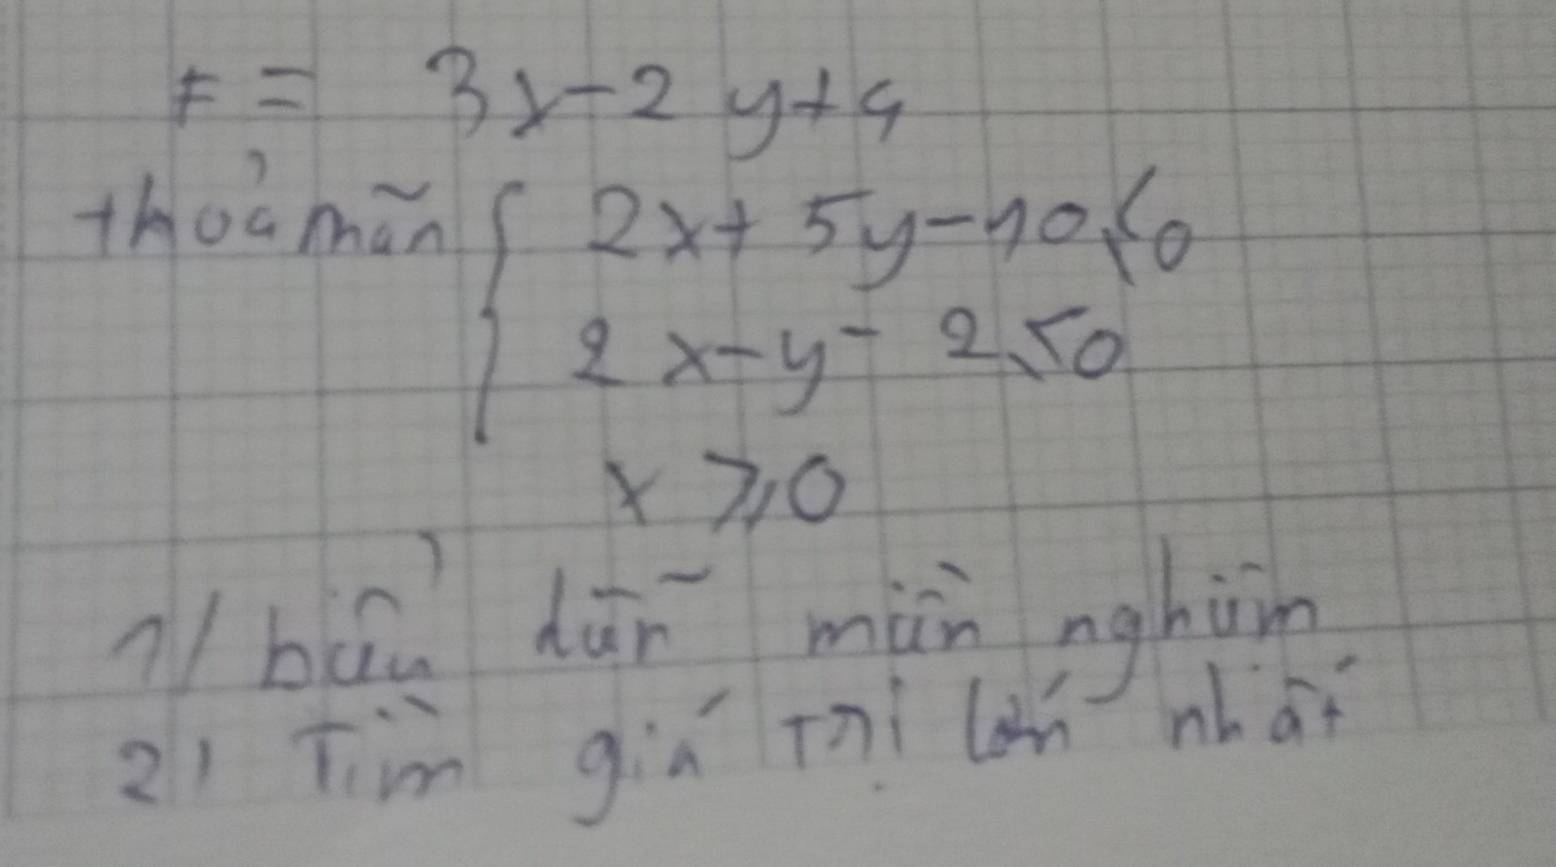 F = 3x-2y+4
thoả mãn { 2x+ 5y-10 ≤ 0
2x-y- 2 ≤ 0
x ≥ 0
1/ biểu diễn miền nghiệm
2) Tìm giá trị lớn nhất